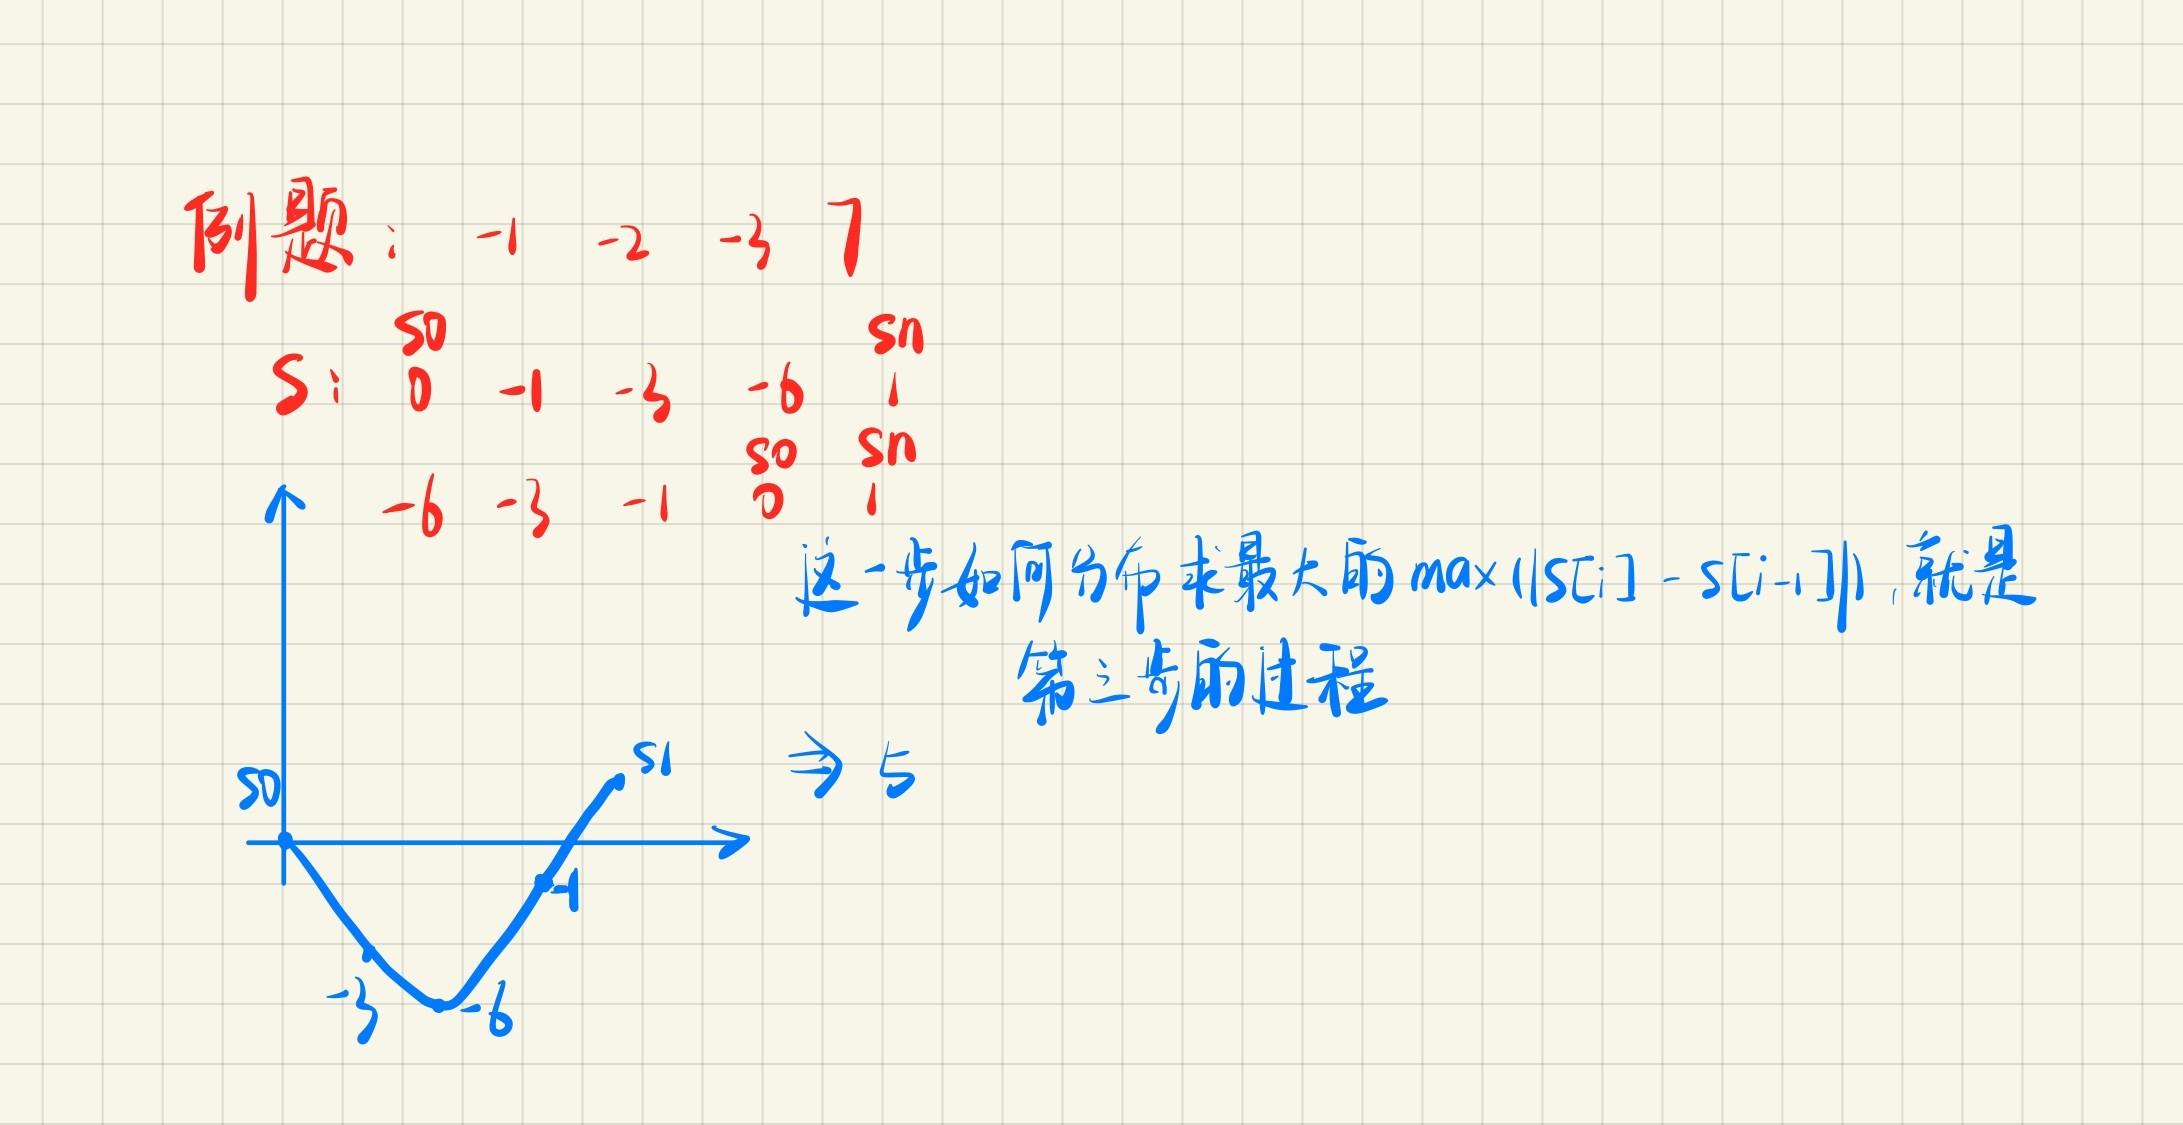 例题: -1 -2 -3 7
S0 Sn
S: 0 -1 -3 -6 1
S0 Sn
-6 -3 -1 0 1
这一步如何分布求最大的max(|S[i] - S[i-1]|),就是
第三步的过程
S0
S1
⇒ 5
-1
-3
-6